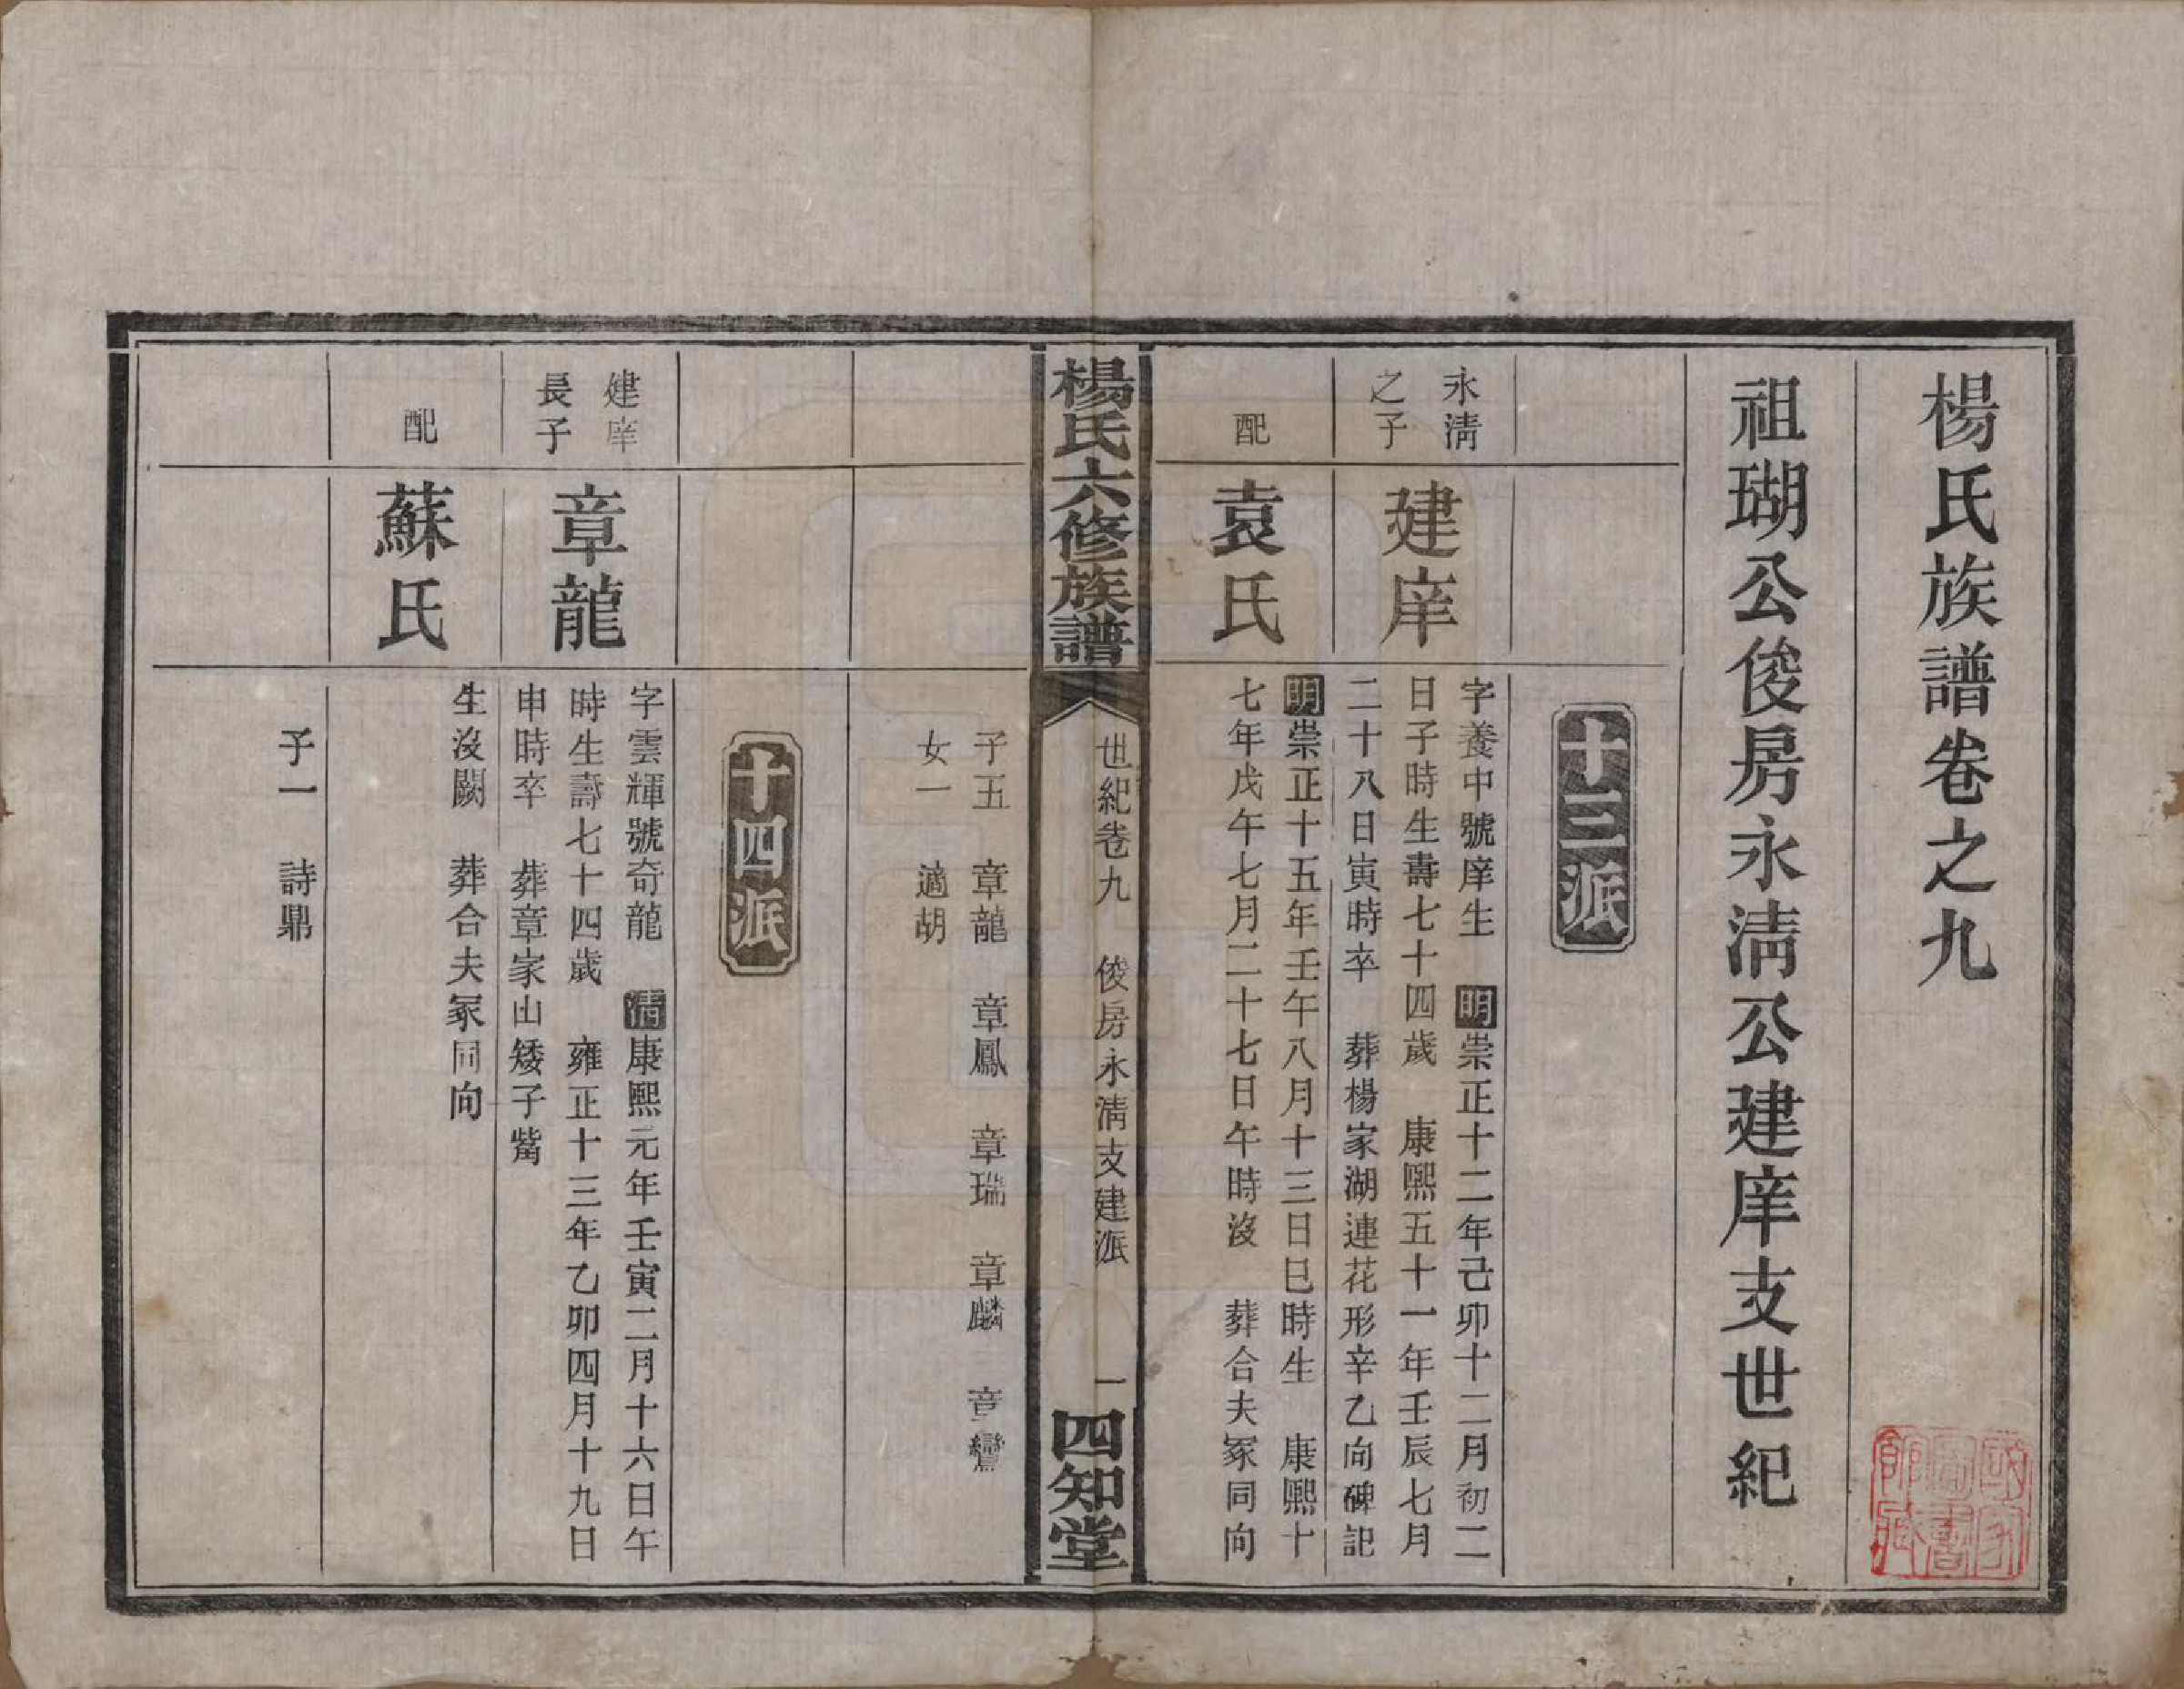 楊氏族譜卷之九
祖瑚公俊房永淸公建庠支世紀
十三派
永淸
之子
建庠
字養中號庠生　明崇正十二年己卯十二月初二
日子時生壽七十四歲　康熙五十一年壬辰七月
二十八日寅時卒　葬楊家湖連花形辛乙向碑記
配
袁氏
明崇正十五年壬午八月十三日巳時生　康熙十
七年戊午七月二十七日午時沒　葬合夫冢同向
楊氏六修族譜
世紀卷九　俊房永淸支建派
一
四知堂
子五　章龍　章鳳　章瑞　章麟　章鸞
女一　適胡
十四派
建庠
長子
章龍
字雲輝號奇龍　淸康熙元年壬寅二月十六日午
時生壽七十四歲　雍正十三年乙卯四月十九日
申時卒　葬章家山矮子觜
配
蘇氏
生沒闕　葬合夫冢同向
子一　詩鼎
國家圖書館藏